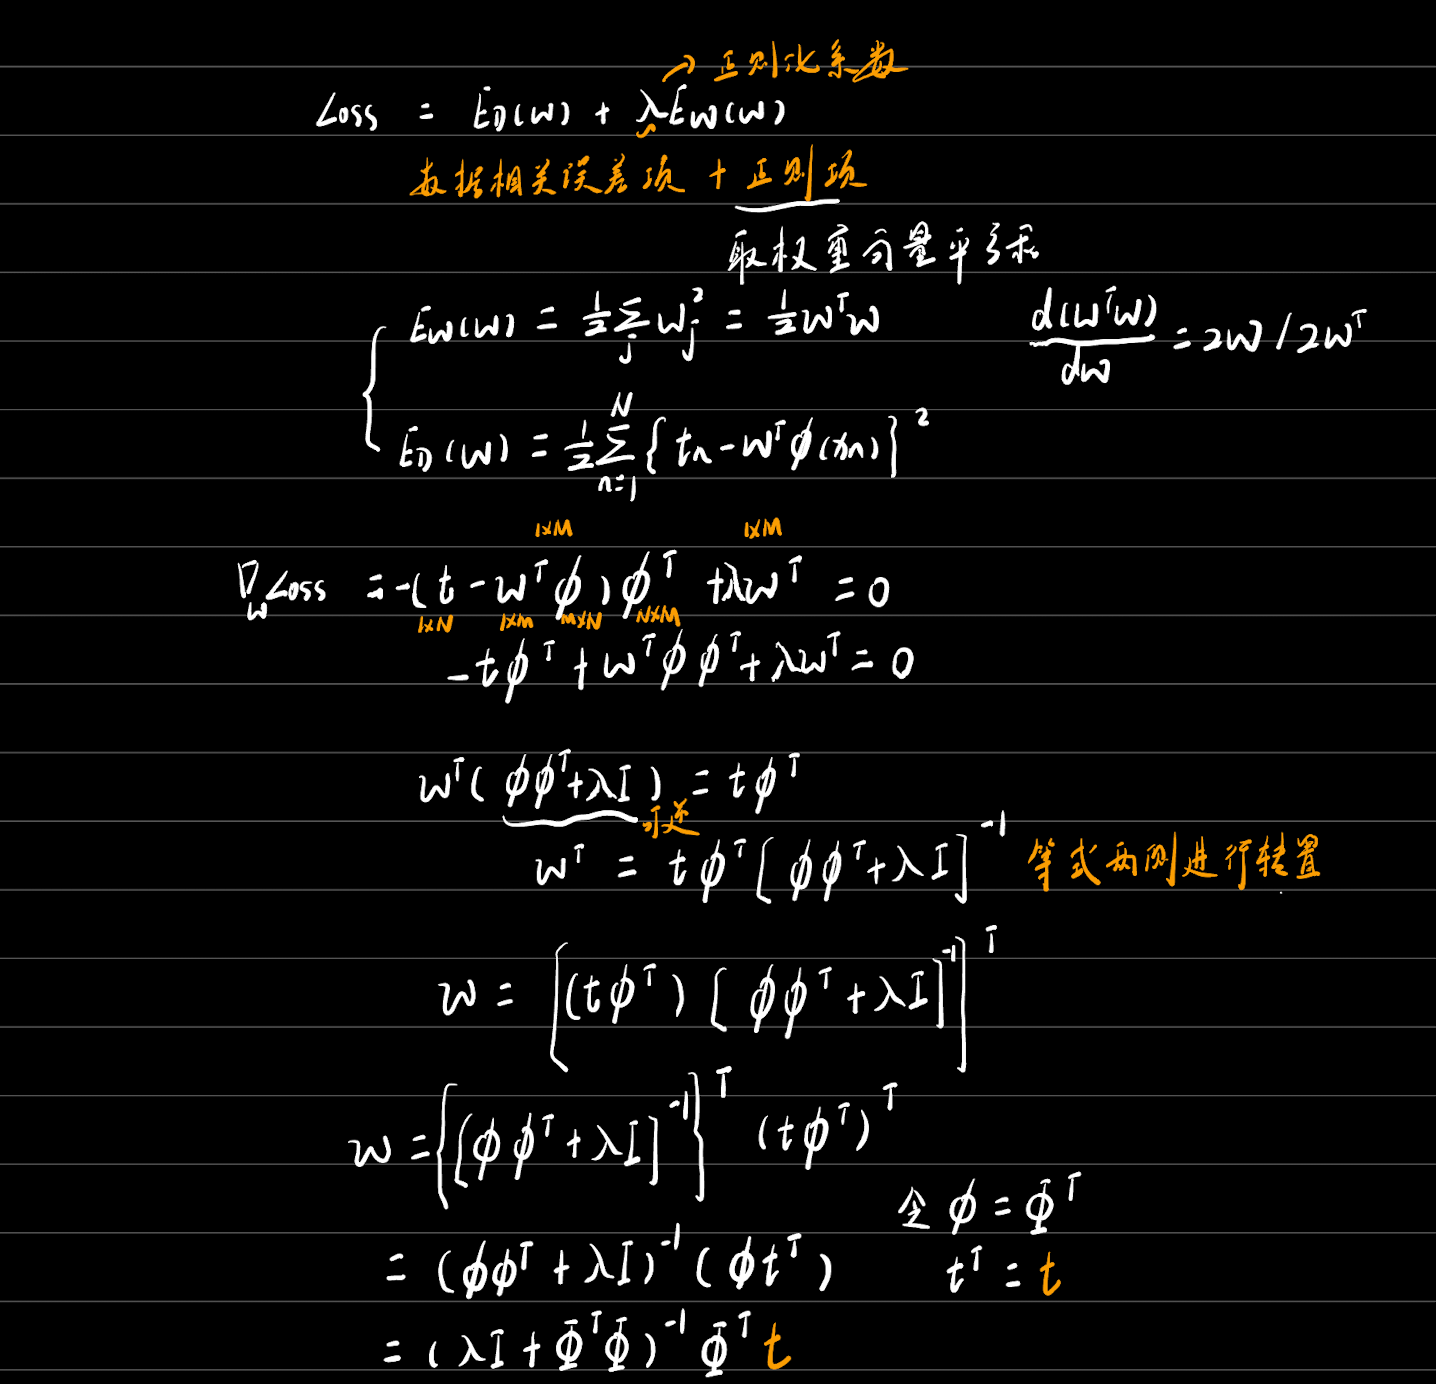 →正则化系数
Loss = E_D(w) + λE_W(w)
数据相关误差项 + 正则项
取权重向量平方和
E_W(w) = ½∑_j w_j² = ½wᵀw    d(wᵀw)/dw = 2w / 2wᵀ
E_D(w) = ½∑_{n=1}^{N} { t_n - wᵀϕ(x_n) }²
1×M 1×M
∇_w Loss = -(t - wᵀϕ)ϕᵀ + λwᵀ = 0
1×N 1×M M×N N×M
-tϕᵀ + wᵀϕϕᵀ + λwᵀ = 0
wᵀ(ϕϕᵀ+λI) = tϕᵀ
可逆
wᵀ = tϕᵀ[ϕϕᵀ+λI]⁻¹ 等式两侧进行转置
w = [(tϕᵀ)[ϕϕᵀ+λI]⁻¹]ᵀ
w = {[ϕϕᵀ+λI]⁻¹}ᵀ(tϕᵀ)ᵀ
令 ϕ = Φᵀ
= (ϕϕᵀ+λI)⁻¹(ϕtᵀ)    tᵀ = t
= (λI+ΦᵀΦ)⁻¹Φᵀt